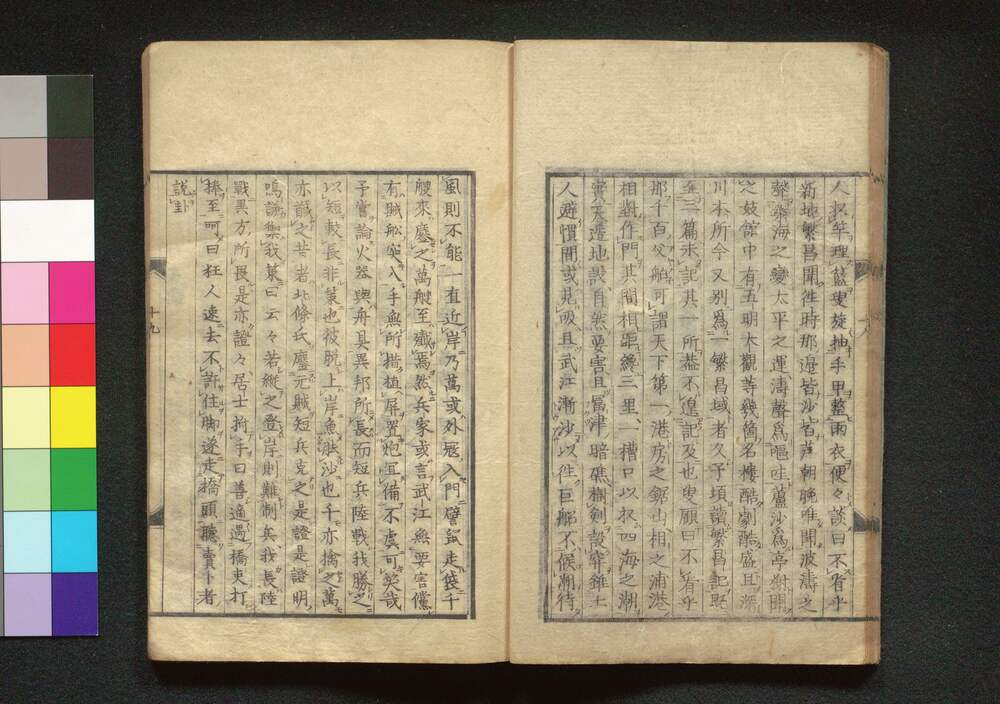 人探竿理籃叟旋抽手甲整雨衣便々談曰不省乎
新地繁昌開徃時那邉皆沙岩芦朝晩唯聞波濤之
聲桒海之變太平之運濤聲為嘔吐蘆沙為亭榭開
之妓舘中有五明大觀等幾箇名樓酷劇酷盛且深
川本所今又別為一繁昌域者久予頃讀繁昌記既
至三篇未記其一所葢不遑記及也叟願曰不省乎
那千百父舩可謂天下第一港房之鋸山相之浦港
相對作門其間相距纔三里一槽口以扠四海之潮
實天造地設自然要害且冨津暗礁樹剣設穽錐土
人避慣間或見吸且武江漸沙以徃巨舶不候潮待
風則不能一直近岸乃萬或外冦入門譬鼠走袋千
艘來鏖之萬艘至殱焉然兵家或言武江無要害儻
有賊舩突入手無所措植屏置炮宜備不虞可笑哉
予嘗論火器與舟具異邦所長而短兵陸戰我勝之
以短較長非策也彼脱上岸魚陸沙也千亦擒之萬
亦馘之昔者北條氏鏖元賊短兵克之是證是證明
鳴謙禦我策曰云々若縱之登岸則難制矣我長陸
戰異方所畏是亦證々居士拊手曰善適遇橋吏打
捧至呵曰狂人速去不許住脚遂走橋頭聽賣卜者
説卦
十九